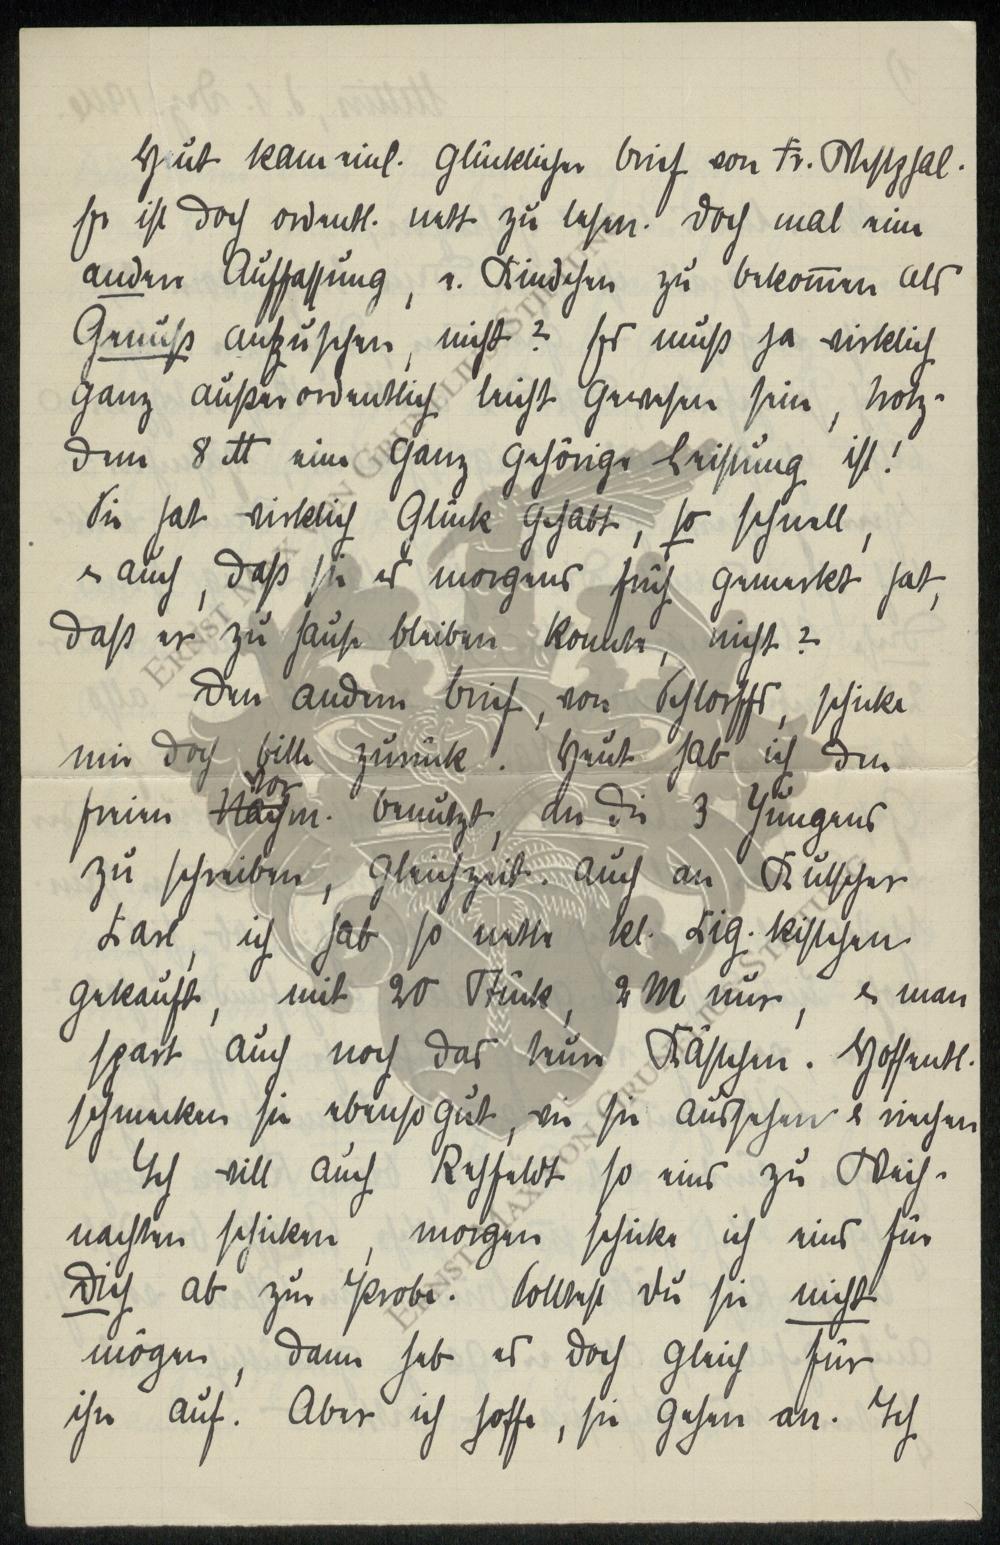 Heut kam einl. glücklicher Brief von Fr. Westphal.
Er ist doch ordentl. nett zu lesen. Doch mal eine
andere Auffassung, e. Kindchen zu bekom̄en als
Genuß anzusehen, nicht? Es muß ja wirklich
ganz außerordentlich leicht gewesen sein, trotz-
dem 8 ℔ eine ganz gehörige Leistung ist!
Sie hat wirklich Glück gehabt, so schnell,
& auch, daß sie es morgens früh gemerkt hat,
daß er zu Hause bleiben konnte, nicht?
Den andern Brief, von Schlorffs, schicke
mir doch bitte zurück. Heut hab ich den
freien Nachm. vor benutzt, an die 3 Jungens
zu schreiben, gleichzeit. auch an Kutscher
Karl, ich hab so nette kl. Zig. kistchen
gekauft, mit 20 Stück, 2 M nur, & man
spart auch noch das teure Kästchen. Hoffentl.
schmecken sie ebenso gut, wie sie aussehen & riechen
Ich will auch Rehfeldt so eins zu Weih-
nachten schicken, morgen schicke ich eins für
Dich ab zur Probe. Solltest du sie nicht
mögen, dann heb es doch gleich für
ihn auf. Aber ich hoffe, sie gehen an. Ich
ERNST MAX VON GRUNELIUS-STIFTUNG
ERNST MAX VON GRUNELIUS-STIFTUNG